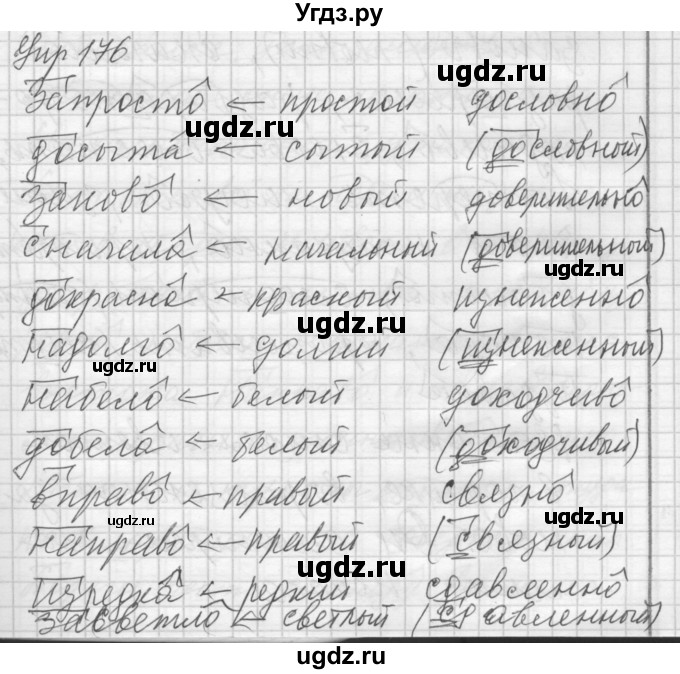 Угдз.ру
Упр 176
запросто ← простой дословно
досыта ← сытый (дословный)
заново ← новый доверительно
сначала ← начальный (доверительный)
докрасна ← красный изнеженно
надолго ← долгий (изнеженный)
набело ← белый доходчиво
добела ← белый (доходчивый)
вправо ← правый связно
направо ← правый (связный)
изредка ← редкий сдавленно
засветло ← светлый (сдавленный)
ugdz.ru
ugdz.ru
ugdz.ru
ugdz.ru
ugdz.ru
ugdz.ru
ugdz.ru
ugdz.ru
ugdz.ru
ugdz.ru
ugdz.ru